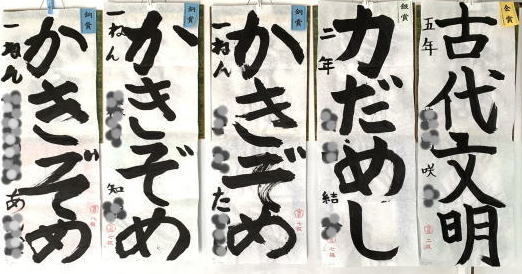 金賞
古代文明
五年
咲
銀賞
力だめし
二年
結
銅賞
かきぞめ
一ねん
た
銅賞
かきぞめ
一ねん
知
銅賞
かきぞめ
一ねん
あ